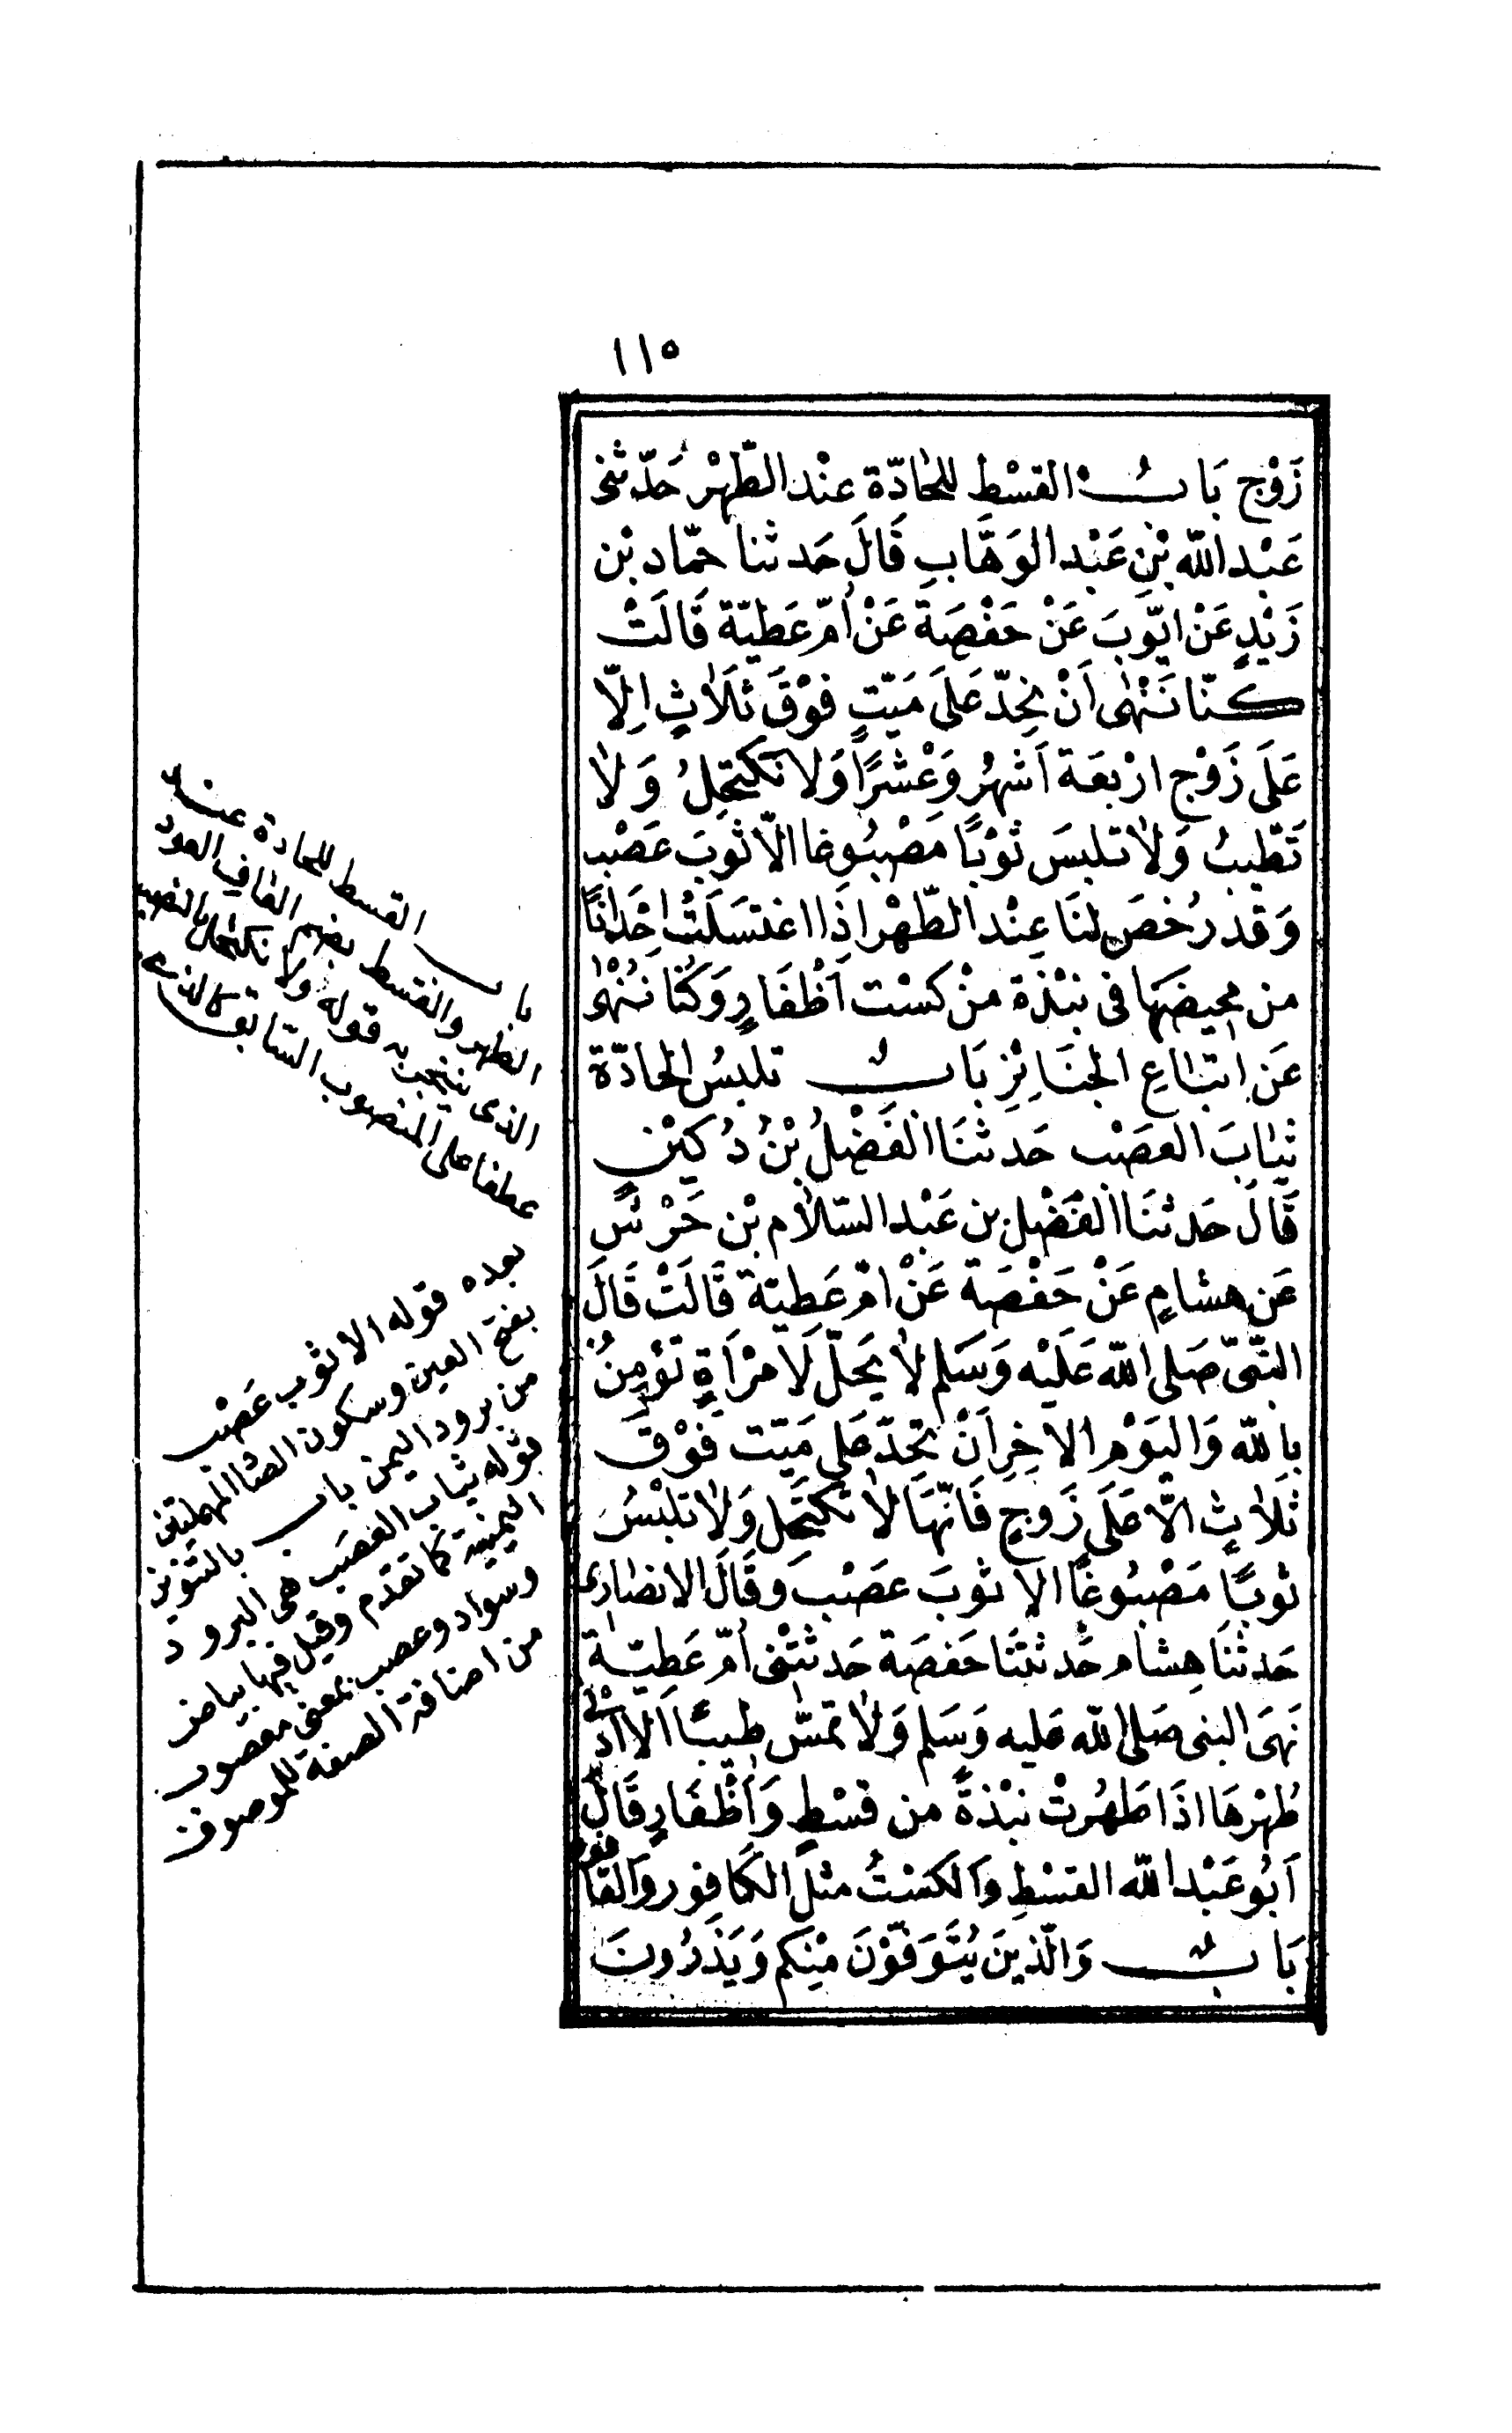 ١١٥
زَوْج بَابُ القسْط للحَادّة عِنْد الطّهْر حَدّثنى
عَبْد اللّه بْنِ عَبْد الوَهَّاب قَالَ حَدثنا حمّاد بْن
زَيْدٍ عَنْ ايّوبَ عَنْ حَفْصَة عَنْ اُمّ عَطيّة قَالَتْ
كُنّا نَنْهٰى اَنْ نحِدّ عَلَى مَيّتٍ فوْقَ ثلَاثٍ اِلّا
عَلَى زَوْج ارْبعَة اَشهُرٍ وَعْشرًا وَلا نكتحِلُ وَلاٰ
تَطّيبُ وَلاٰ تلبسَ ثوْبًا مَصْبُوغا الّا ثوبَ عَصْب
وَقد رُخصَ لنَا عِنْد الطّهْر اذَا اغتسَلَتْ اِحْدَانَا
من محِيضَهَا فى نبْذة منْ كسْت اَظْفَارٍ وَكُنّا نُنْهٰى
عَن اِتبَاعِ الجنَائِزِ بَابُ تلبسُ الحَادّة
ثيٰابَ العصَبْ حَدثنَا الفَضْلُ بْنُ دُكَيْنٍ
قَالَ حَدثنَا الفَضْل بن عَبْد السّلاٰم بْن حَرْسٍ
عَن هشامٍ عَنْ حَفْصَة عَنْ امّ عَطِيّة قَالَتْ قَالَ
النّبىّ صَلى اللّه عَلَيْه وَسَلم لاٰ يَحلّ لَامرْاَةٍ تؤمِنُ
باللّه وَاليَوْم الاخِرِ اَنْ تحّدّ عَلى مَيّت فَوْقَ
ثلَاثٍ الّا عَلَى زَوجٍ فَانّهَا لاٰ تكتَحِل وَلاٰ تلبْسُ
ثوبًا مَصْبُوغًا الا ثوبَ عصَبْ وقَالَ الانصَارى
حَدثنَا هِشام حَدثتنَا حَفصَة حَدثتْنى اُمّ عَطِيّة
نَهىَ النبى صَلى اللّه عليه وَسَلم وَلاٰ تمسّ طيبًا اَلّا اَدْنٰى
طُهْرهَا اذَا طَهُرتْ نبْذةً من قسْطٍ وَاَظْفَارٍ قَالَ
اَبُو عَبْد اللّه القسْطِ وَالكسْتُ مثلَ الكَافور وَالقَافور
بَابُ وَالّذينَ يُتَوَفّوْنَ مْنِكم وَيَذَرُونَ
باب القسط للحادة عند
الطهر والقسط بضم القاف العود
الذى يتبخر به قوله ولا تكتحل بالنصب
عطفا على المنصوب السابق كالذى
بعده قوله الا ثوب عَصْب
بفتح العين وسكون الصاد المهملتين
من برود اليمن باب بالتنوين
قوله ثياب العَصَب هى البرود
اليمنية كما تقدم وقيل فيها بياض
وسواد وعصب بمعنى معصوب
من اضافة الصفة للموصوف